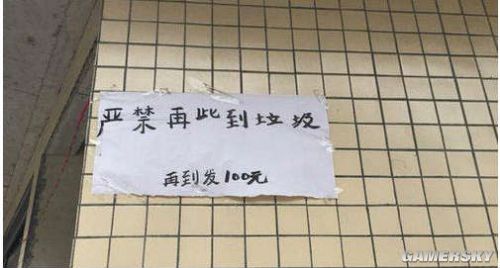 严禁再此到垃圾
再到发100元
GAMERSKY